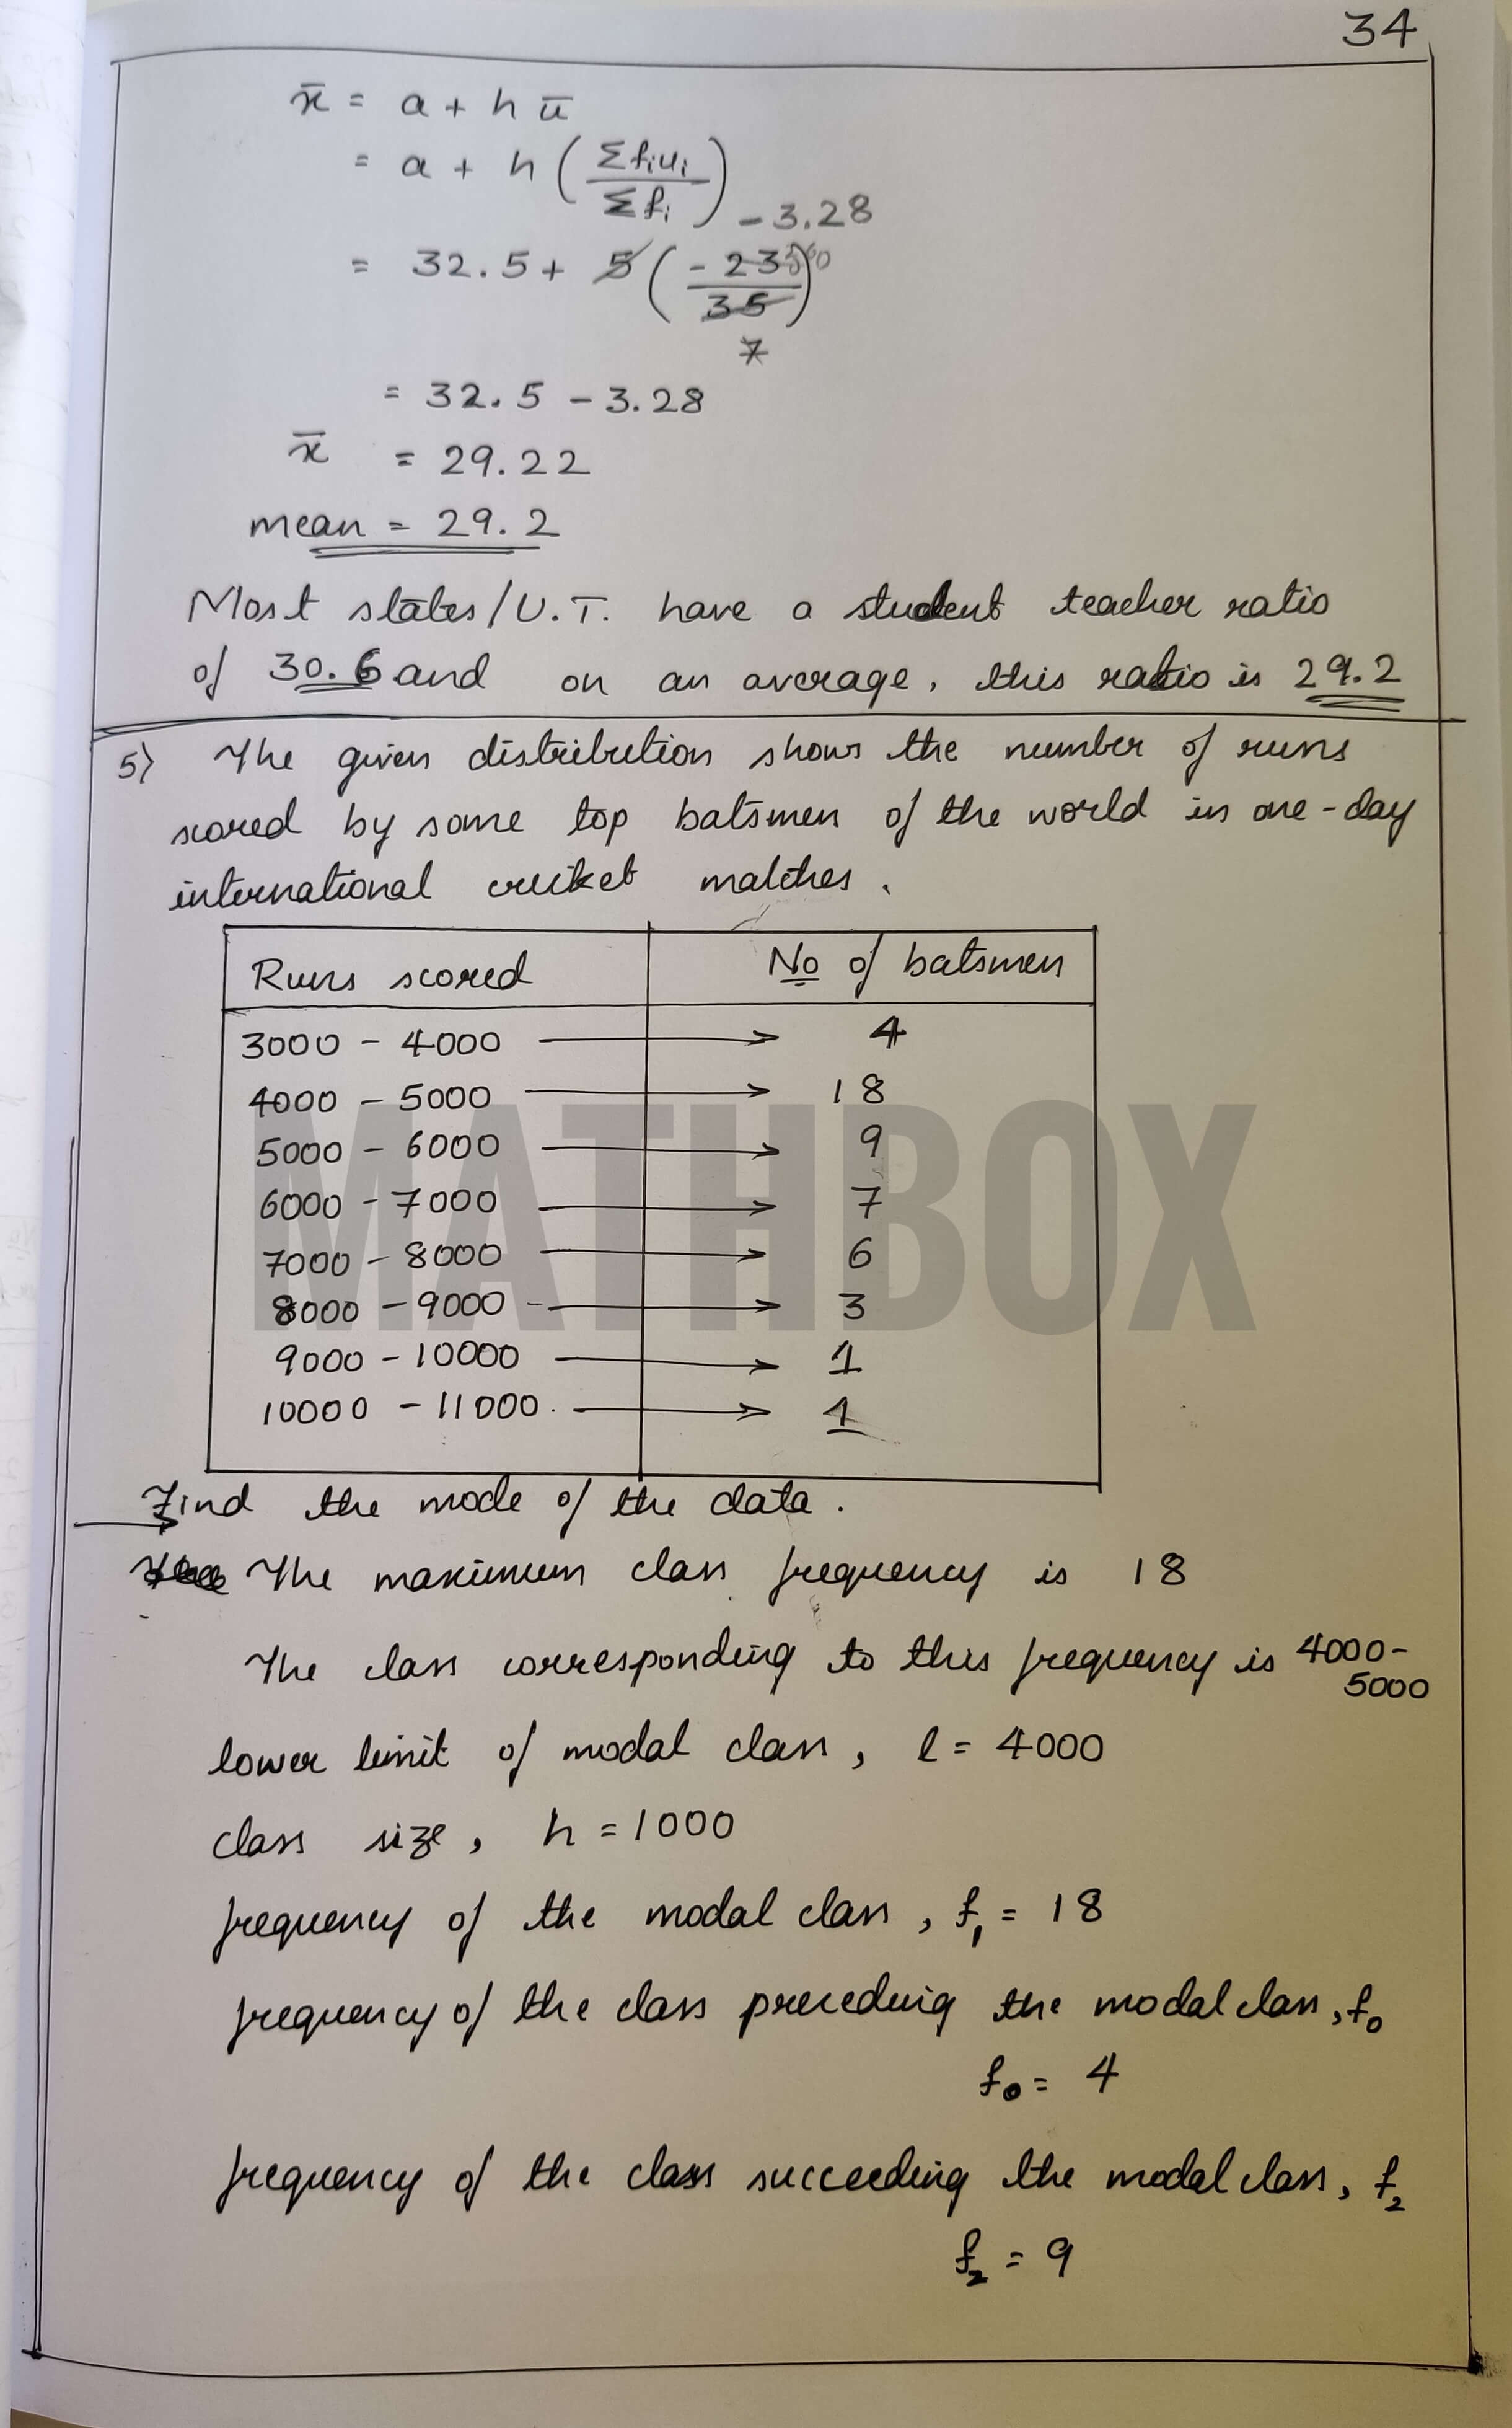 34
x̄ = a + h ū
= a + h ( Σfiui / Σfi )
- 3.28
= 32.5 + 5 ( -23 / 35 )
7
= 32.5 - 3.28
x̄ = 29.22
mean = 29.2
Most states/U.T. have a student teacher ratio
of 30.6 and on an average, this ratio is 29.2
5) The given distribution shows the number of runs
scored by some top batsmen of the world in one-day
international cricket matches.
Runs scored No of batsmen
3000 - 4000 → 4
4000 - 5000 → 18
5000 - 6000 → 9
6000 - 7000 → 7
7000 - 8000 → 6
8000 - 9000 → 3
9000 - 10000 → 1
10000 - 11000. → 1
MATHBOX
→ Find the mode of the data.
The maximum class frequency is 18
The class corresponding to this frequency is 4000-
5000
lower limit of modal class, l = 4000
class size, h = 1000
frequency of the modal class, f₁ = 18
frequency of the class preceding the modal class, f₀
f₀ = 4
frequency of the class succeeding the modal class, f₂
f₂ = 9